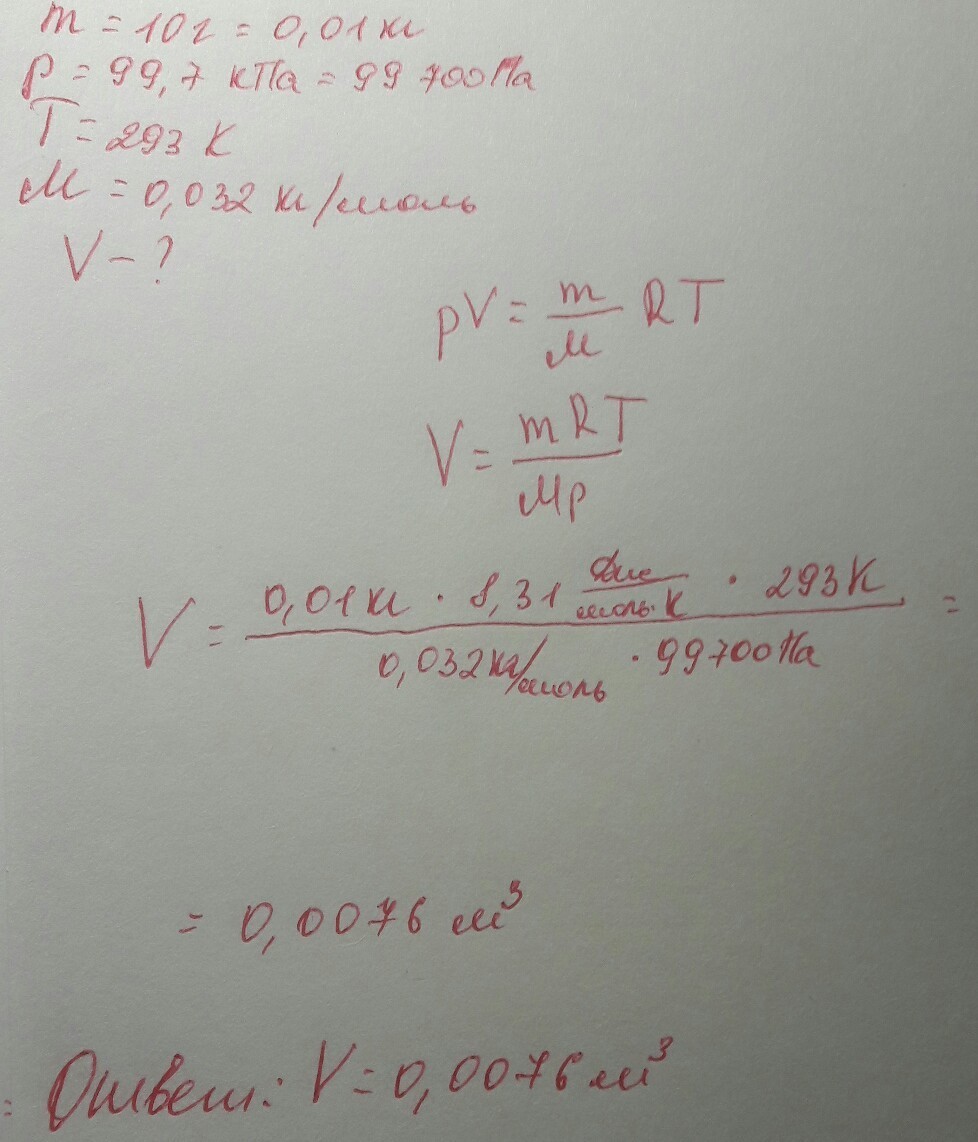 m = 10г = 0,01кг
p = 99,7 кПа = 99 700Па
T = 293 К
M = 0,032 кг/моль
V - ?
pV = m/M RT
V = mRT/Mp
V = 0,01кг · 8,31 Дж/моль·К · 293К / 0,032кг/моль · 99700Па =
= 0,0076 м³
Ответ: V = 0,0076 м³